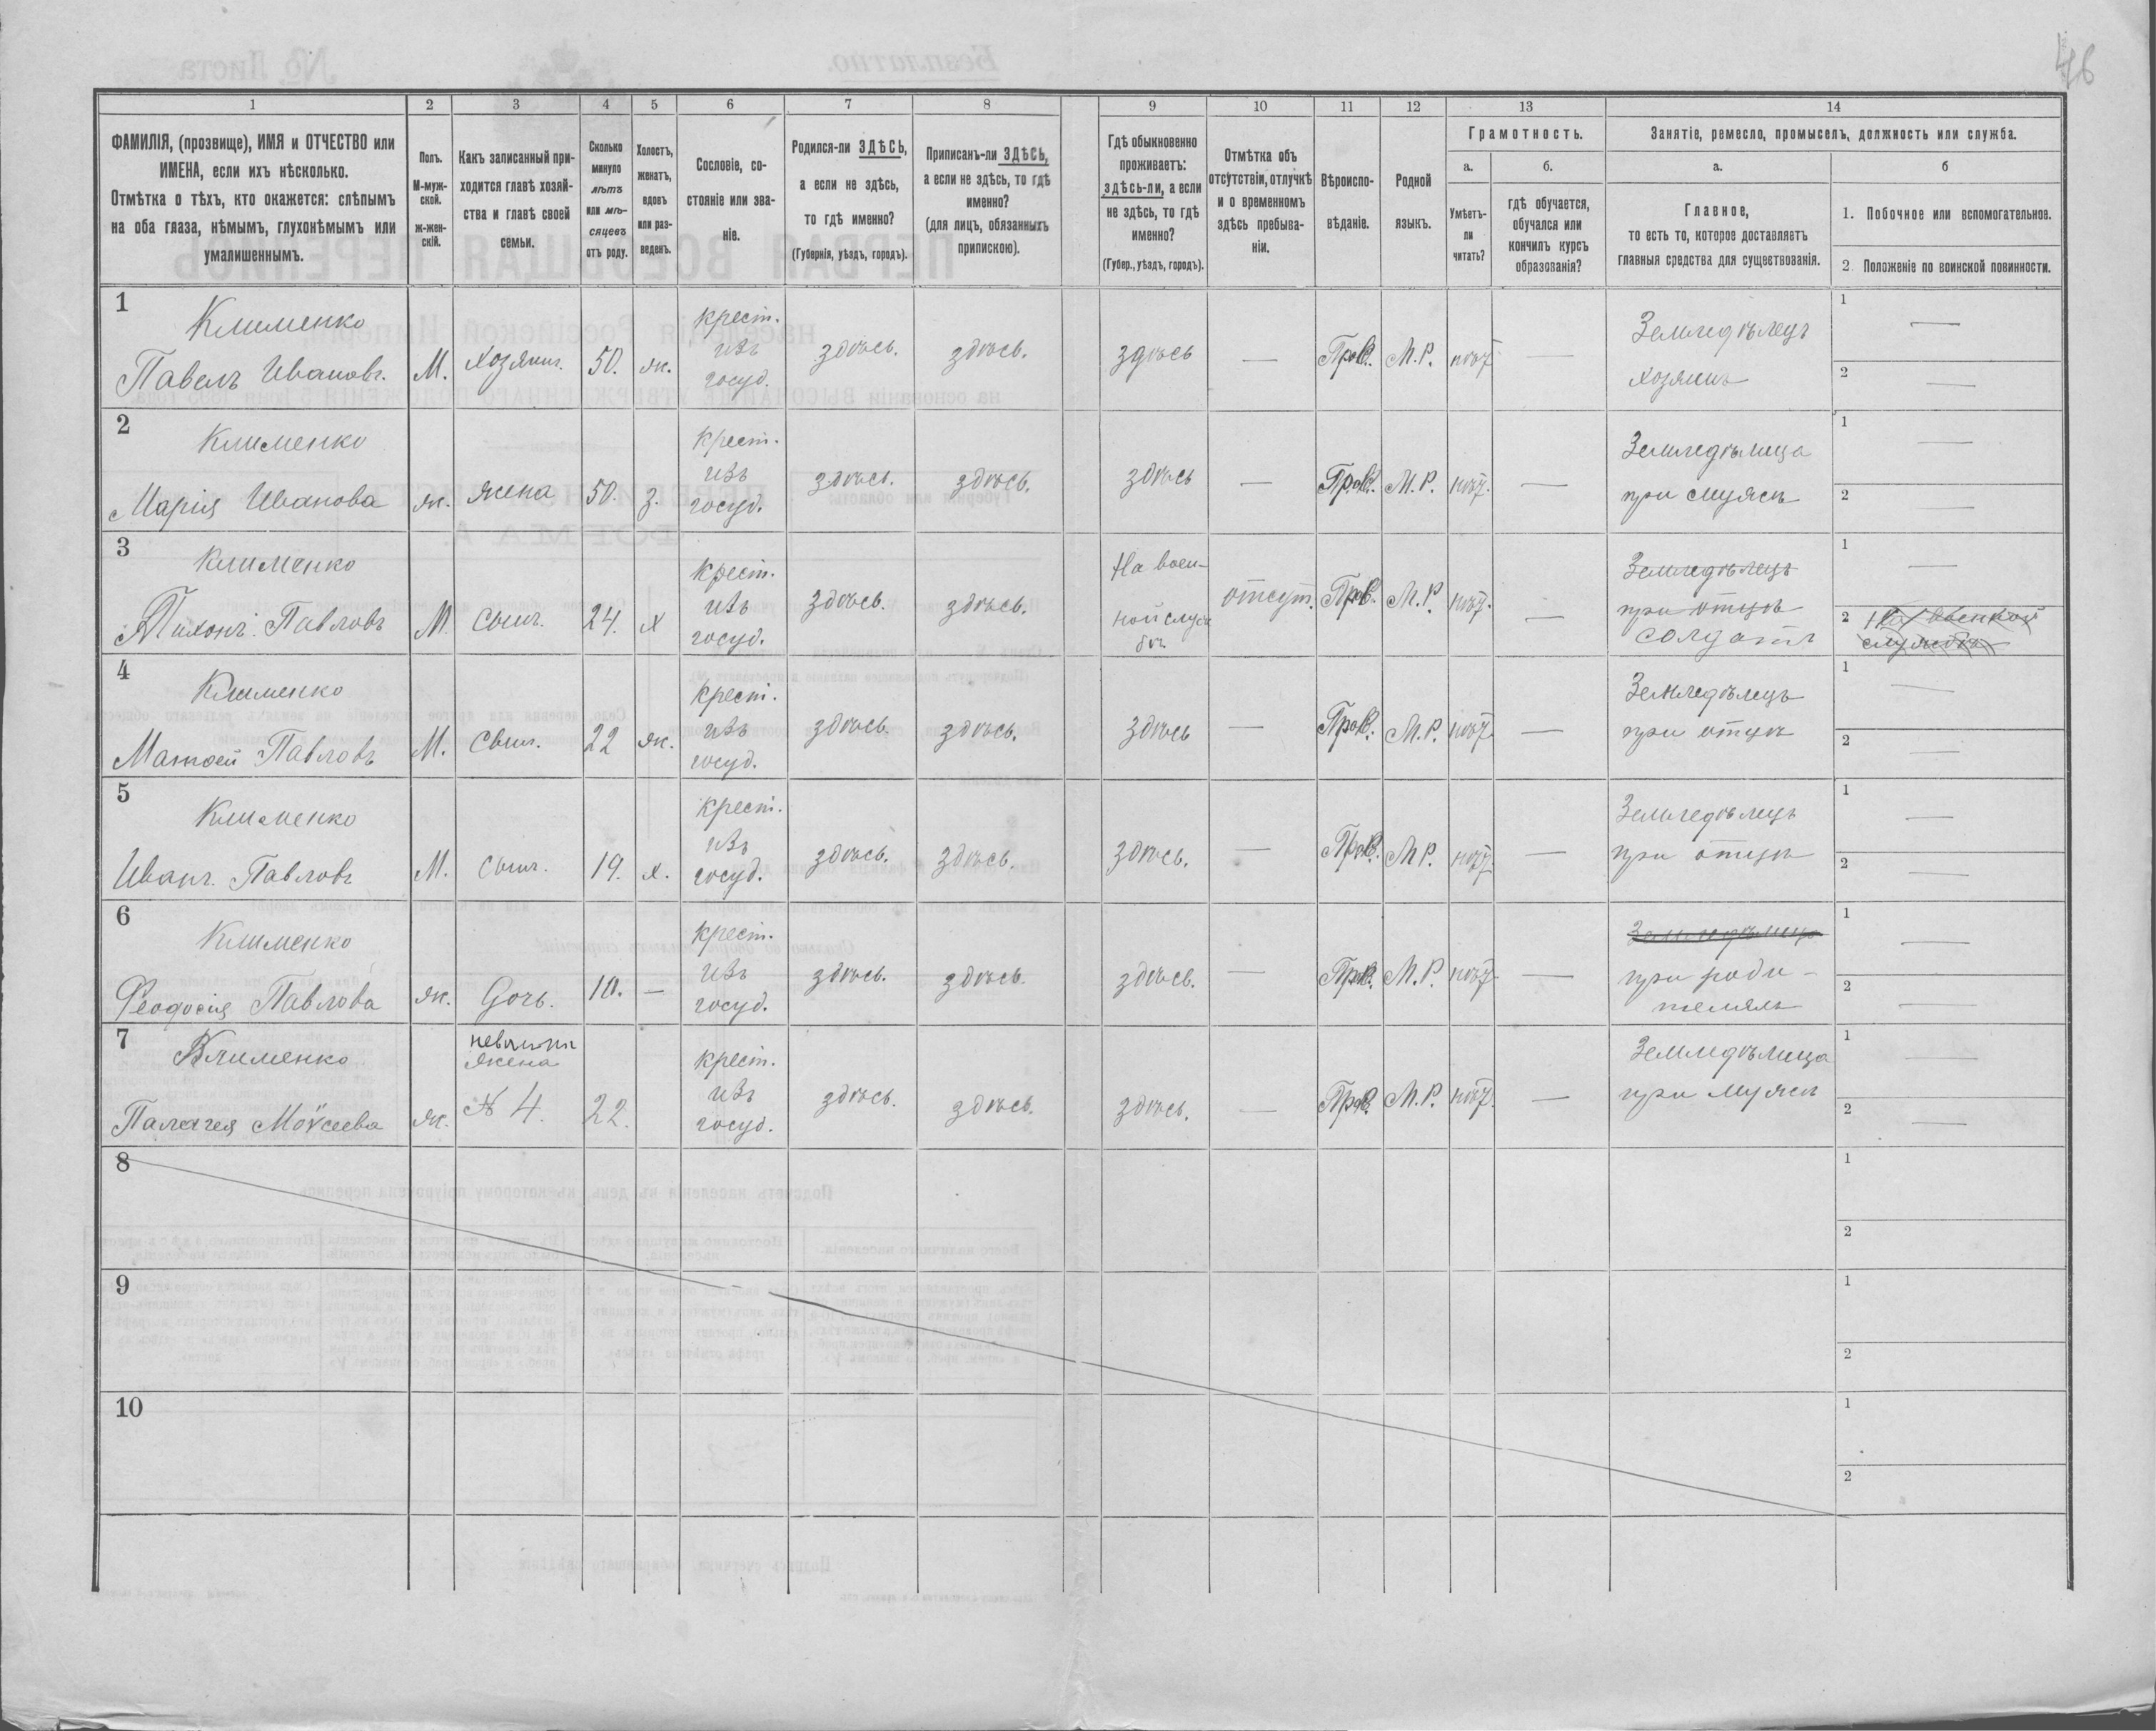 46
1 2 3 4 5 6 7 8 9 10 11 12 13 14
ФАМИЛІЯ, (прозвище), ИМЯ и ОТЧЕСТВО или
ИМЕНА, если ихъ нѣсколько.
Отмѣтка о тѣхъ, кто окажется: слѣпымъ
на оба глаза, нѣмымъ, глухонѣмымъ или
умалишеннымъ.
Полъ.
М-муж-
ской.
Ж-жен-
скій.
Какъ записанный при-
ходится главѣ хозяй-
ства и главѣ своей
семьи.
Сколько
минуло
лѣтъ
или мѣ-
сяцевъ
отъ роду.
Холостъ,
женатъ,
вдовъ
или раз-
веденъ.
Сословіе, со-
стояніе или зва-
ніе.
Родился-ли ЗДѢСЬ,
а если не здѣсь,
то гдѣ именно?
(Губернія, уѣздъ, городъ).
Приписанъ-ли ЗДѢСЬ,
а если не здѣсь, то гдѣ
именно?
(для лицъ, обязанныхъ
припискою).
Гдѣ обыкновенно
проживаетъ:
здѣсь-ли, а если
не здѣсь, то гдѣ
именно?
(Губер., уѣздъ, городъ).
Отмѣтка объ
отсутствіи, отлучкѣ
и о временномъ
здѣсь пребыва-
ніи.
Вѣроиспо-
вѣданіе.
Родной
языкъ.
Грамотность.
а.
Умѣетъ-
ли
читать?
б.
гдѣ обучается,
обучался или
кончилъ курсъ
образованія?
Занятіе, ремесло, промыселъ, должность или служба.
а.
Главное,
то есть то, которое доставляетъ
главныя средства для существованія.
б
1. Побочное или вспомогательное.
2 Положеніе по воинской повинности.
1
Клименко
Павелъ Ивановъ. М. Хозяинъ. 50. ж.
крест.
изъ
госуд.
здѣсь. здѣсь. здѣсь — Прав. М.Р. нѣт —
Земледѣлецъ
хозяинъ
1 —
2 —
2
Клименко
Марія Иванова ж. жена 50. з.
крест.
изъ
госуд.
здѣсь. здѣсь. здѣсь — Прав. М.Р. нѣт. —
Земледѣлица
при мужѣ
1 —
2 —
3
Клименко
Тихонъ. Павловъ М. Сынъ. 24. х
крест.
изъ
госуд.
здѣсь. здѣсь.
На воен-
ной служ
бѣ
отсут. Прав. М.Р. нѣт. —
Земледѣлецъ
при отцѣ
солдатъ
1 —
2 На военной
службѣ
4
Клименко
Матвей Павловъ М. Сынъ. 22 ж.
крест.
изъ
госуд.
здѣсь. здѣсь. здѣсь — Прав. М.Р. нѣт —
Земледѣлецъ
при отцѣ
1 —
2 —
5
Клименко
Иванъ. Павловъ М. Сынъ. 19. х.
крест.
изъ
госуд.
здѣсь. здѣсь. здѣсь. — Прав. М.Р. нѣт —
Земледѣлецъ
при отцѣ
1 —
2 —
6
Клименко
Феодосія Павлова ж. Дочь. 10. —
крест.
изъ
госуд.
здѣсь. здѣсь. здѣсь. — Прав. М.Р. нѣт. —
Земледѣлица
при роди-
теляхъ
1 —
2 —
7
Клименко
Палагея Моѵсеева ж.
невѣстка
жена
№ 4. 22.
крест.
изъ
госуд.
здѣсь. здѣсь. здѣсь. — Прав. М.Р. нѣт. —
Земледѣлица
при мужѣ
1 —
2 —
8
1
2
9
1
2
10
1
2